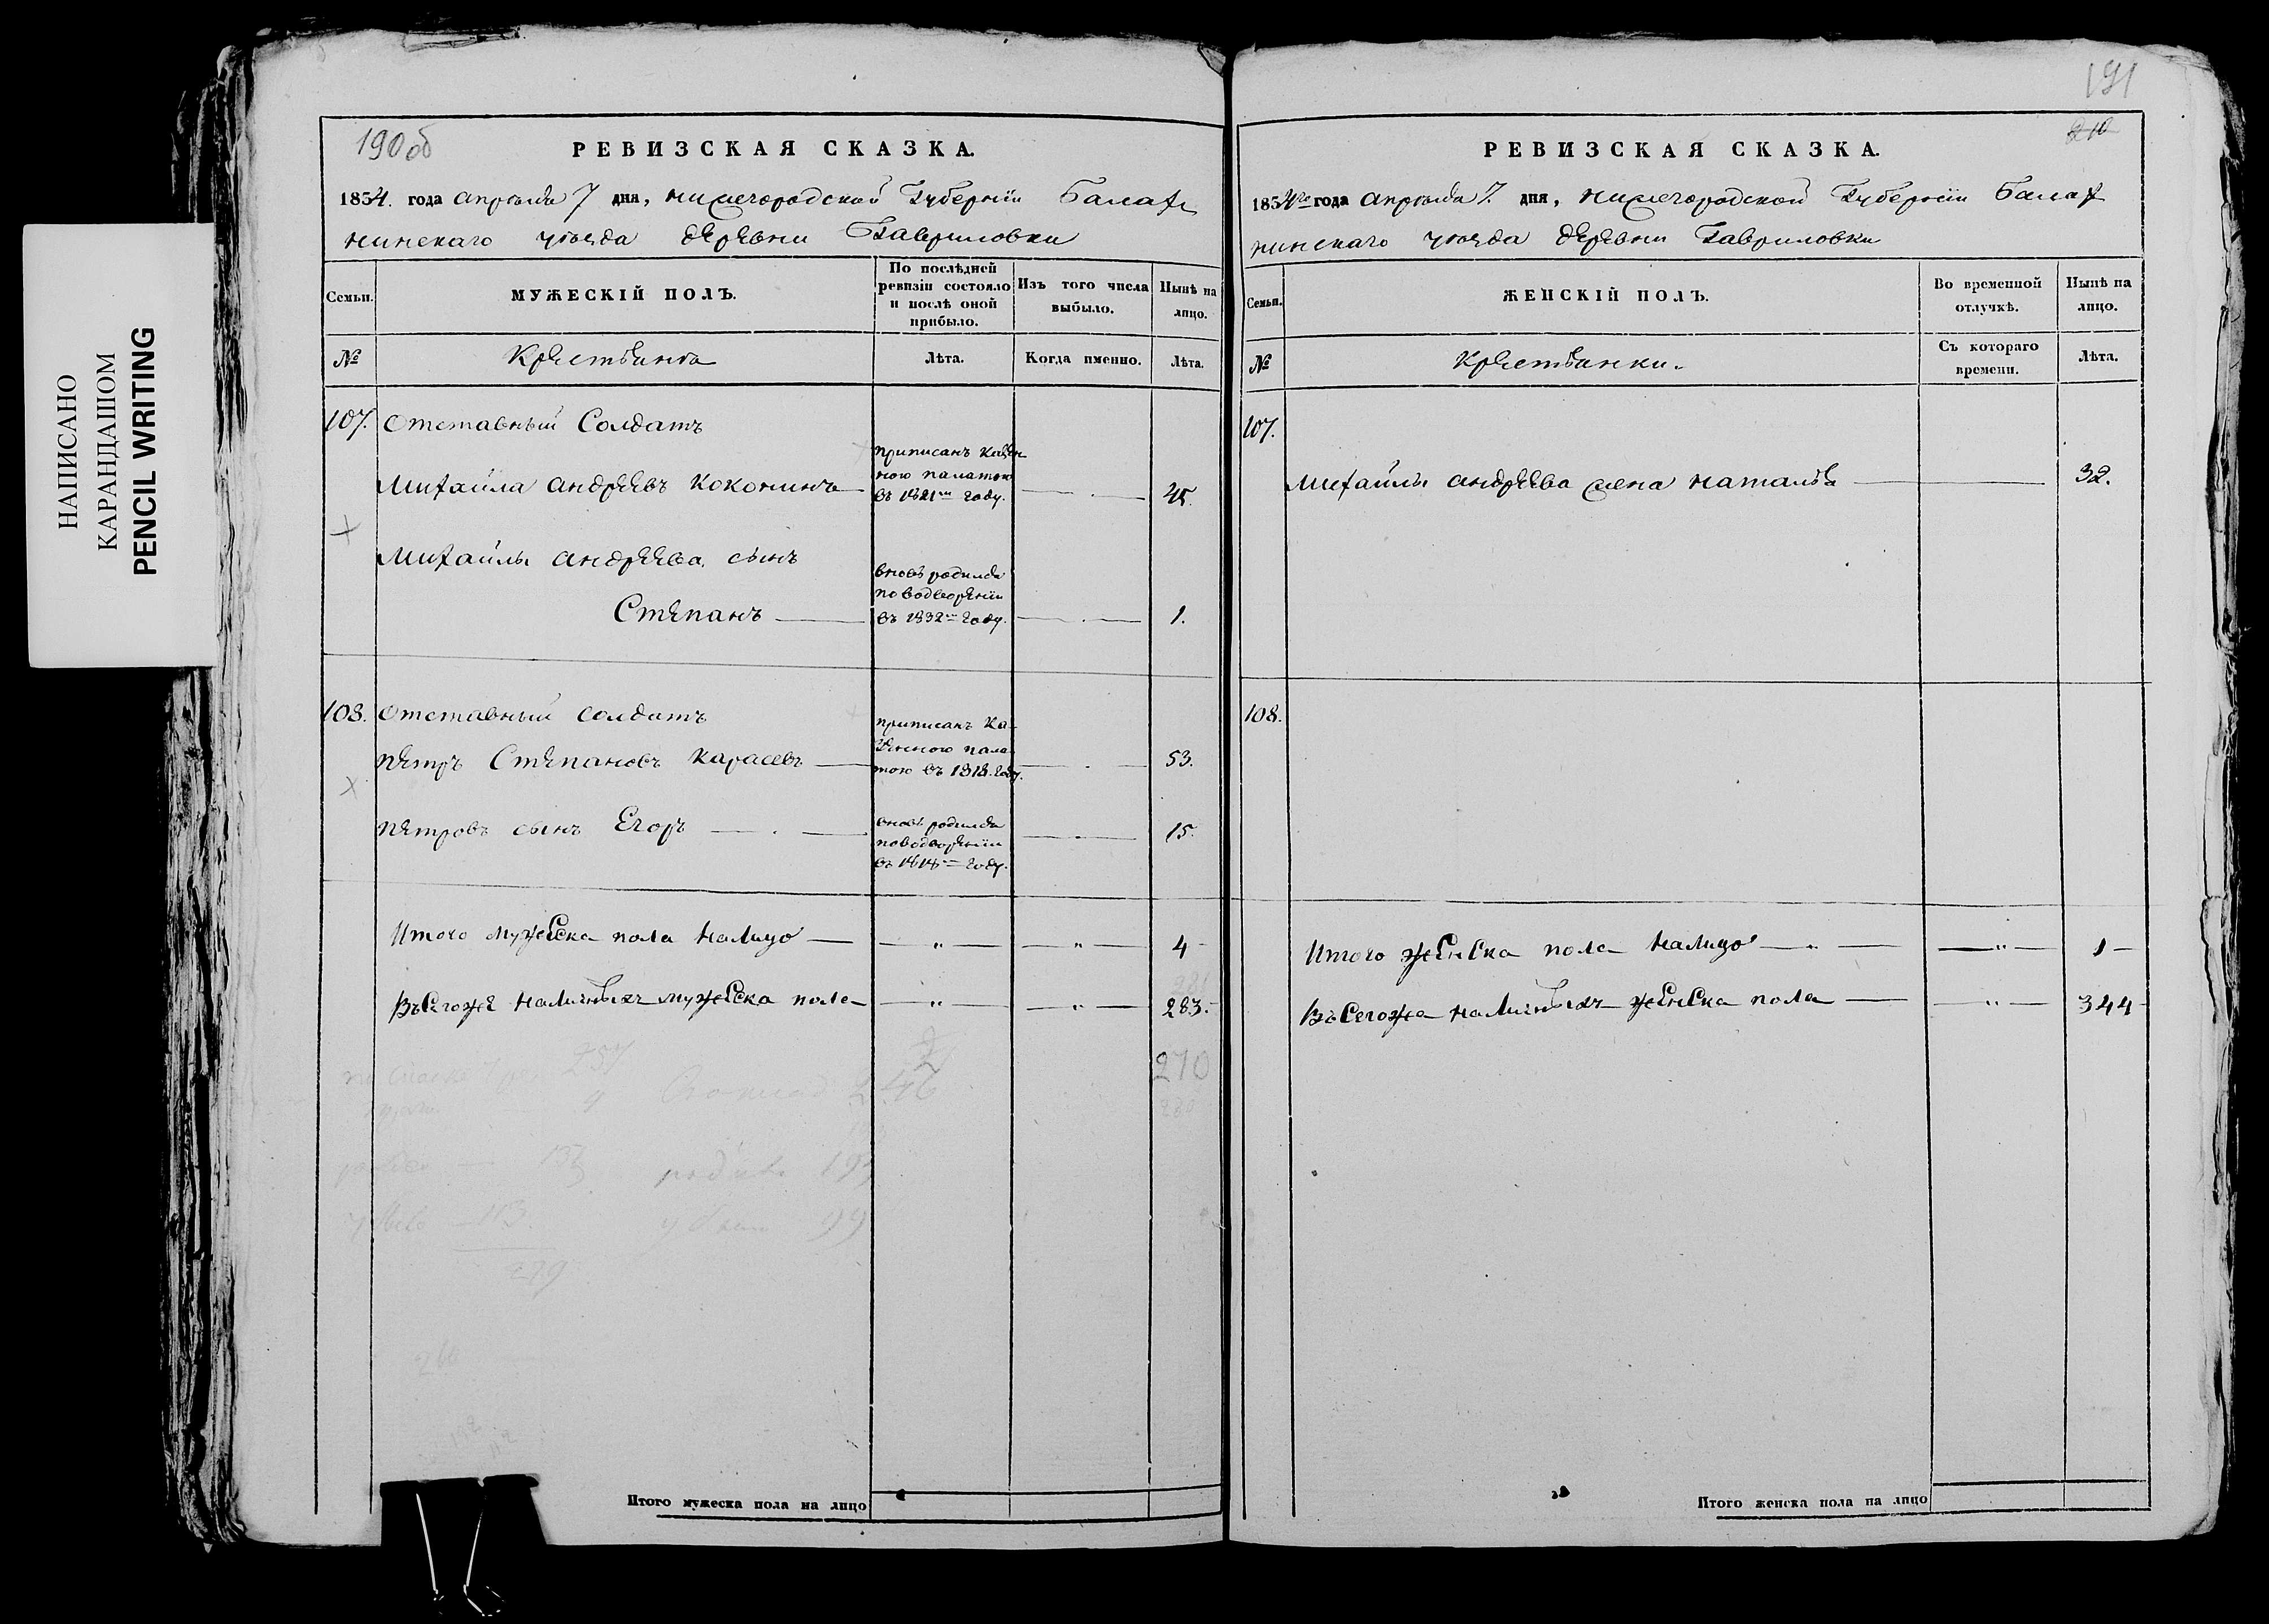 НАПИСАНО
КАРАНДАШОМ
PENCIL WRITING
190об
РЕВИЗСКАЯ СКАЗКА.
1854. года апрѣля 7 дня, нижегородской Губерніи Балах
нинскаго уѣзда деревни Гавриловки
Семьи.
МУЖЕСКІЙ ПОЛЪ.
По послѣдней
ревизіи состояло
и послѣ оной
прибыло.
Изъ того числа
выбыло.
Нынѣ на
лицо.
№
Крестьяна
Лѣта.
Когда именно.
Лѣта.
107. Отставный Солдатъ
Михайла андреевъ Коконинъ
приписанъ Казен
ною палатою
въ году.
45.
Михайлы андреева сынъ
Степанъ
вновь родился
по водвореніи
въ году.
1.
108. Отставный солдатъ
петръ Степановъ Карасевъ
приписанъ Ка-
зенною пала
тою въ году.
53.
петровъ сынъ Егоръ
вновь родился
по водвореніи
въ году.
15.
Итого мужеска пола налицо — „ — „ — 4
Въсегоже наличныхъ мужеска пола — „ — „ — 283.
270
257
246
родив 193
убыло 113.
99
279
260
Итого мужеска пола на лицо
191
210
РЕВИЗСКАЯ СКАЗКА.
1854го года апрѣля 7. дня, нижегородской Губерніи Балах
нинскаго уѣзда деревни Гавриловки
Семьи.
ЖЕНСКІЙ ПОЛЪ.
Во временной
отлучкѣ.
Нынѣ на
лицо.
№
Крестьянки.
Съ котораго
времени.
Лѣта.
107.
Михайлы андреева жена наталья — 32.
108.
Итого женска пола налицо — „ — „ — 1
Въсегоже наличныхъ женска пола — „ — 344
Итого женска пола на лицо